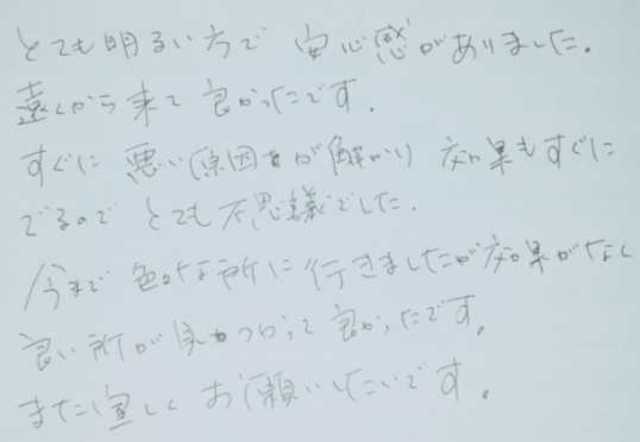 とても明るい方で 安心感がありました。
遠くから来て 良かったです。
すぐに 悪い原因が解かり 効果もすぐに
でるので とても不思議でした。
今まで 色々な所に行きましたが効果がなく
良い所が見つかって良かったです。
また宜しく お願いしたいです。